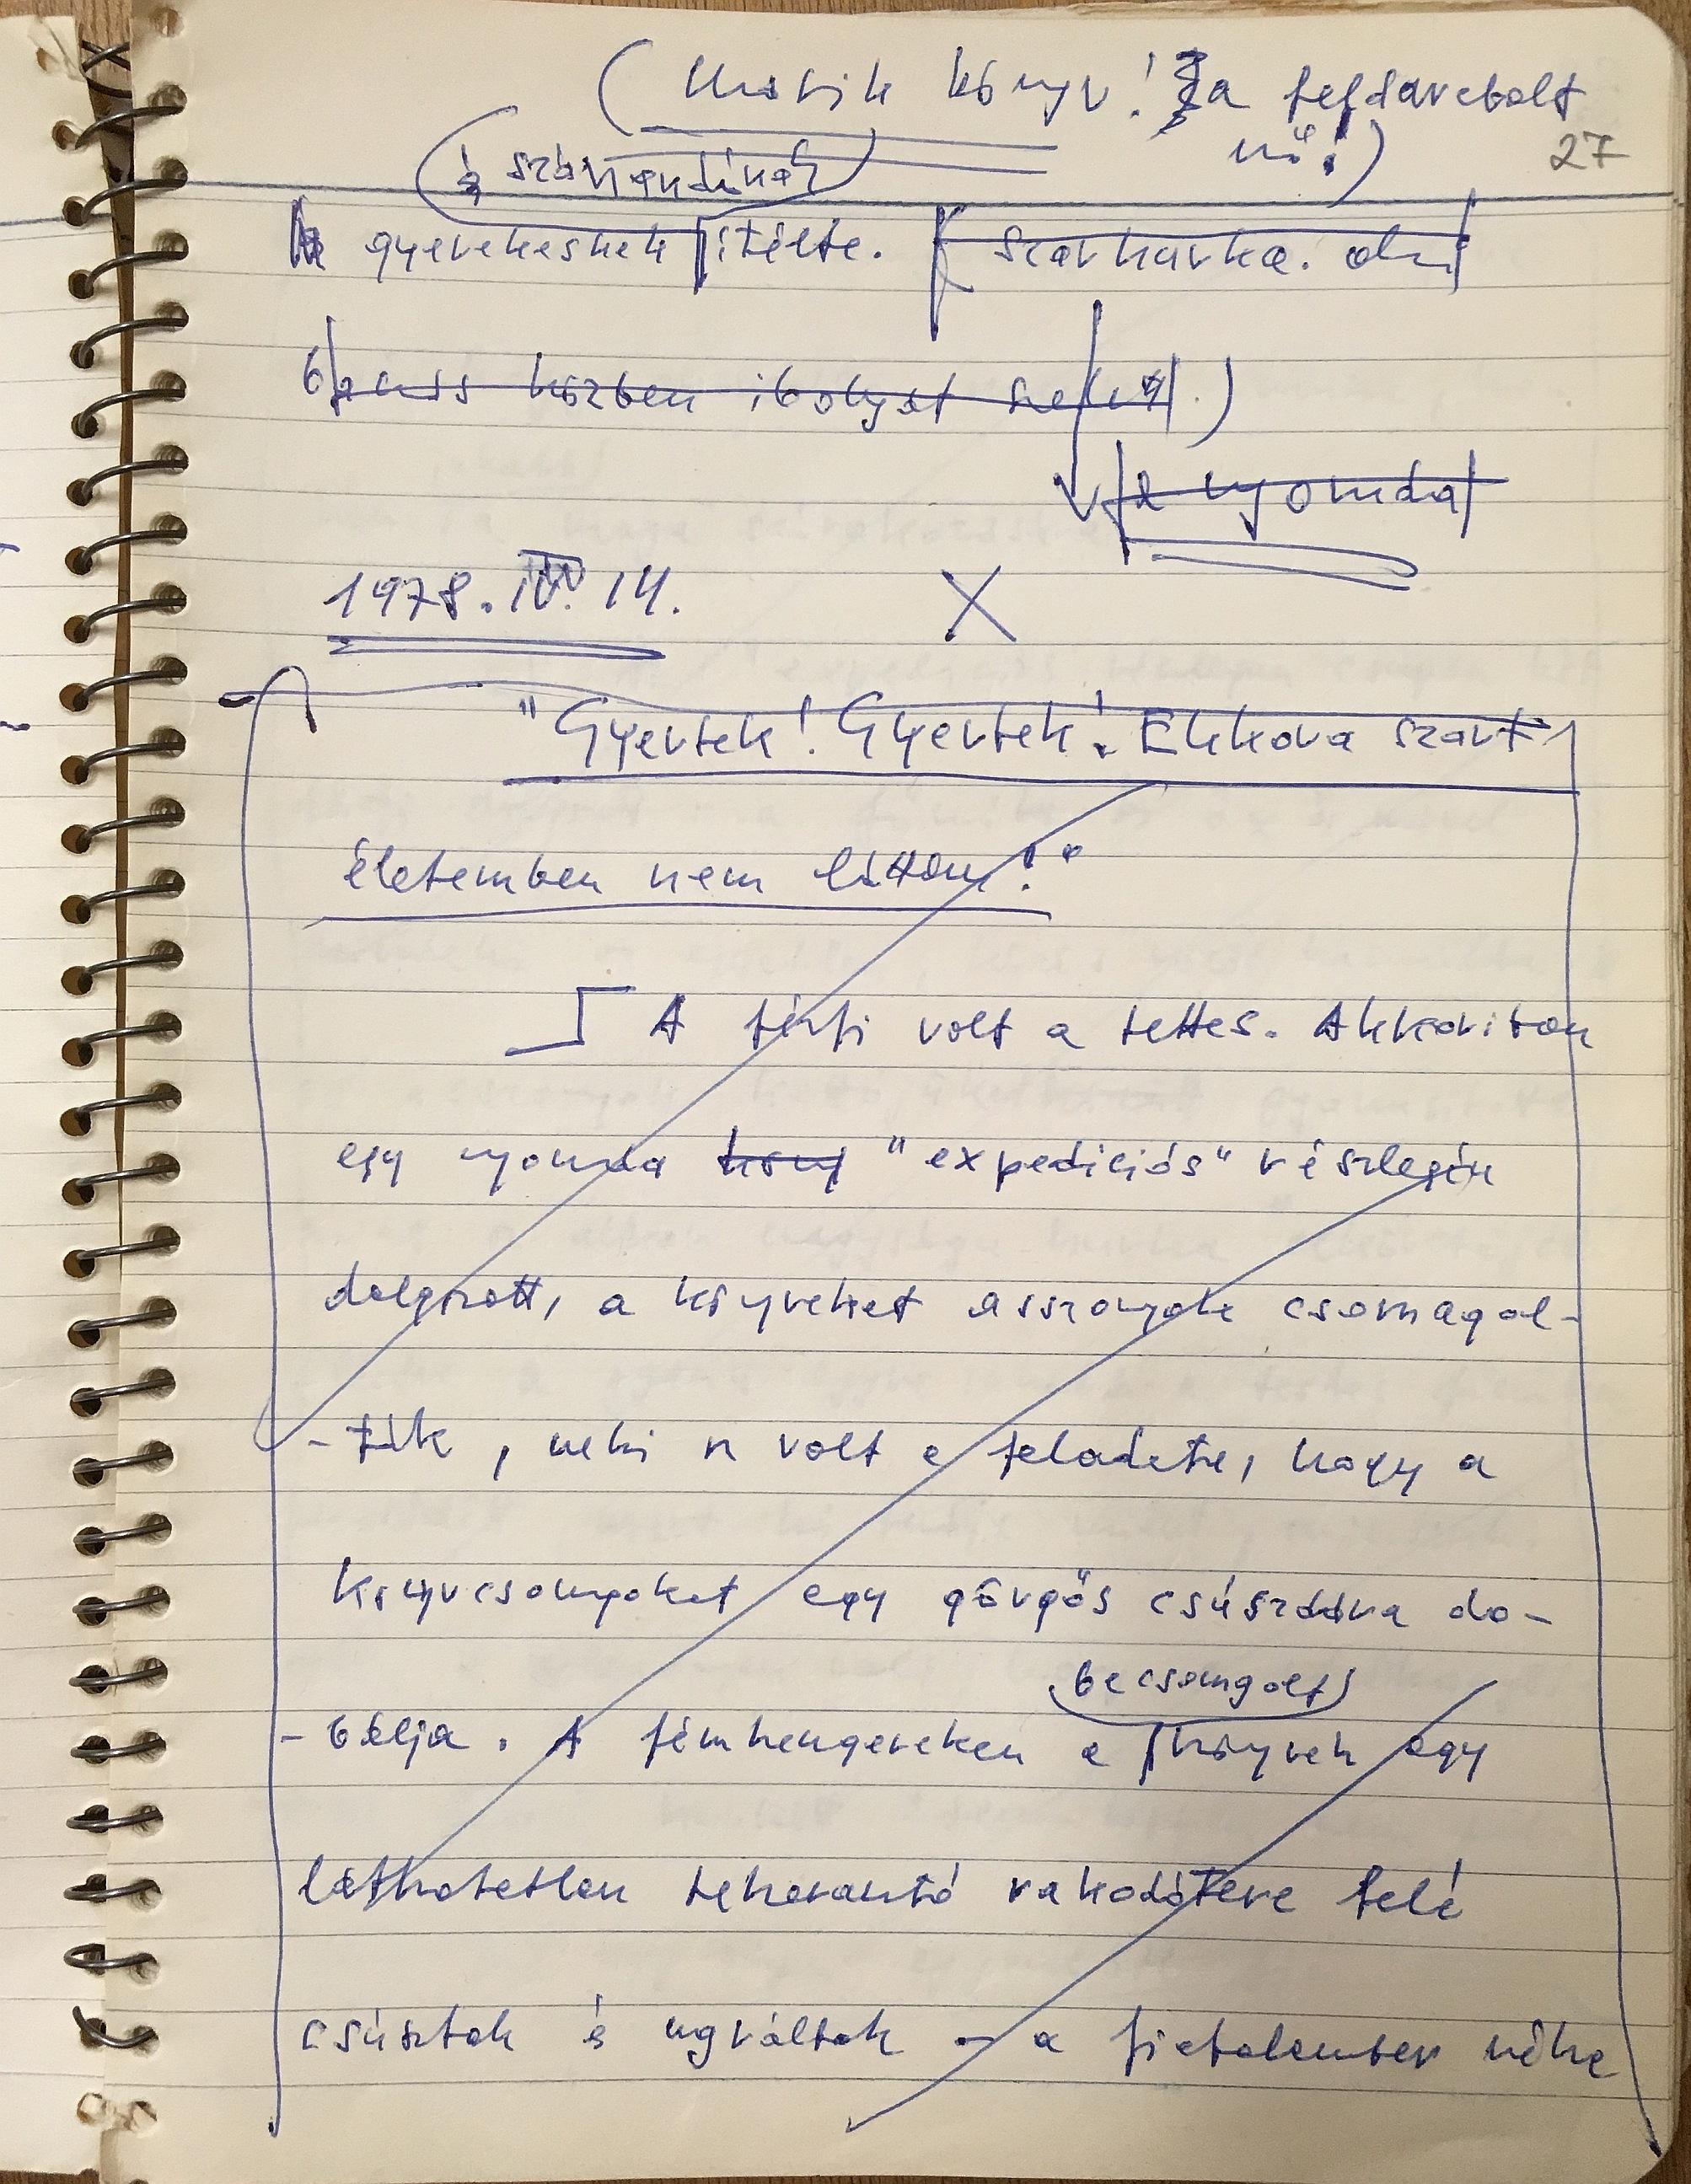 (Másik könyv! a feldarabolt
nő!)
27
és szánandónak
gyerekesnek ítélte. (Szarkavka. olni
közben ibolyát
a nyomda
1978. IV. 14. X
"Gyertek! Gyertek! Ekkora szart
életemben nem láttam!"
A férfi volt a tettes. Akkoriban
egy nyomda köny "expediciós" részlegén
dolgozott, a könyveket asszonyok csomagol-
-ták, neki n volt a feladata, hogy a
könyvcsomagokat egy görgős csúszdára do-
becsomagolt
-bálja. A fémhengereken a könyvek egy
láthatatlan teherautó rakodótere felé
csúsztak és ugráltak – a fiatalember néha